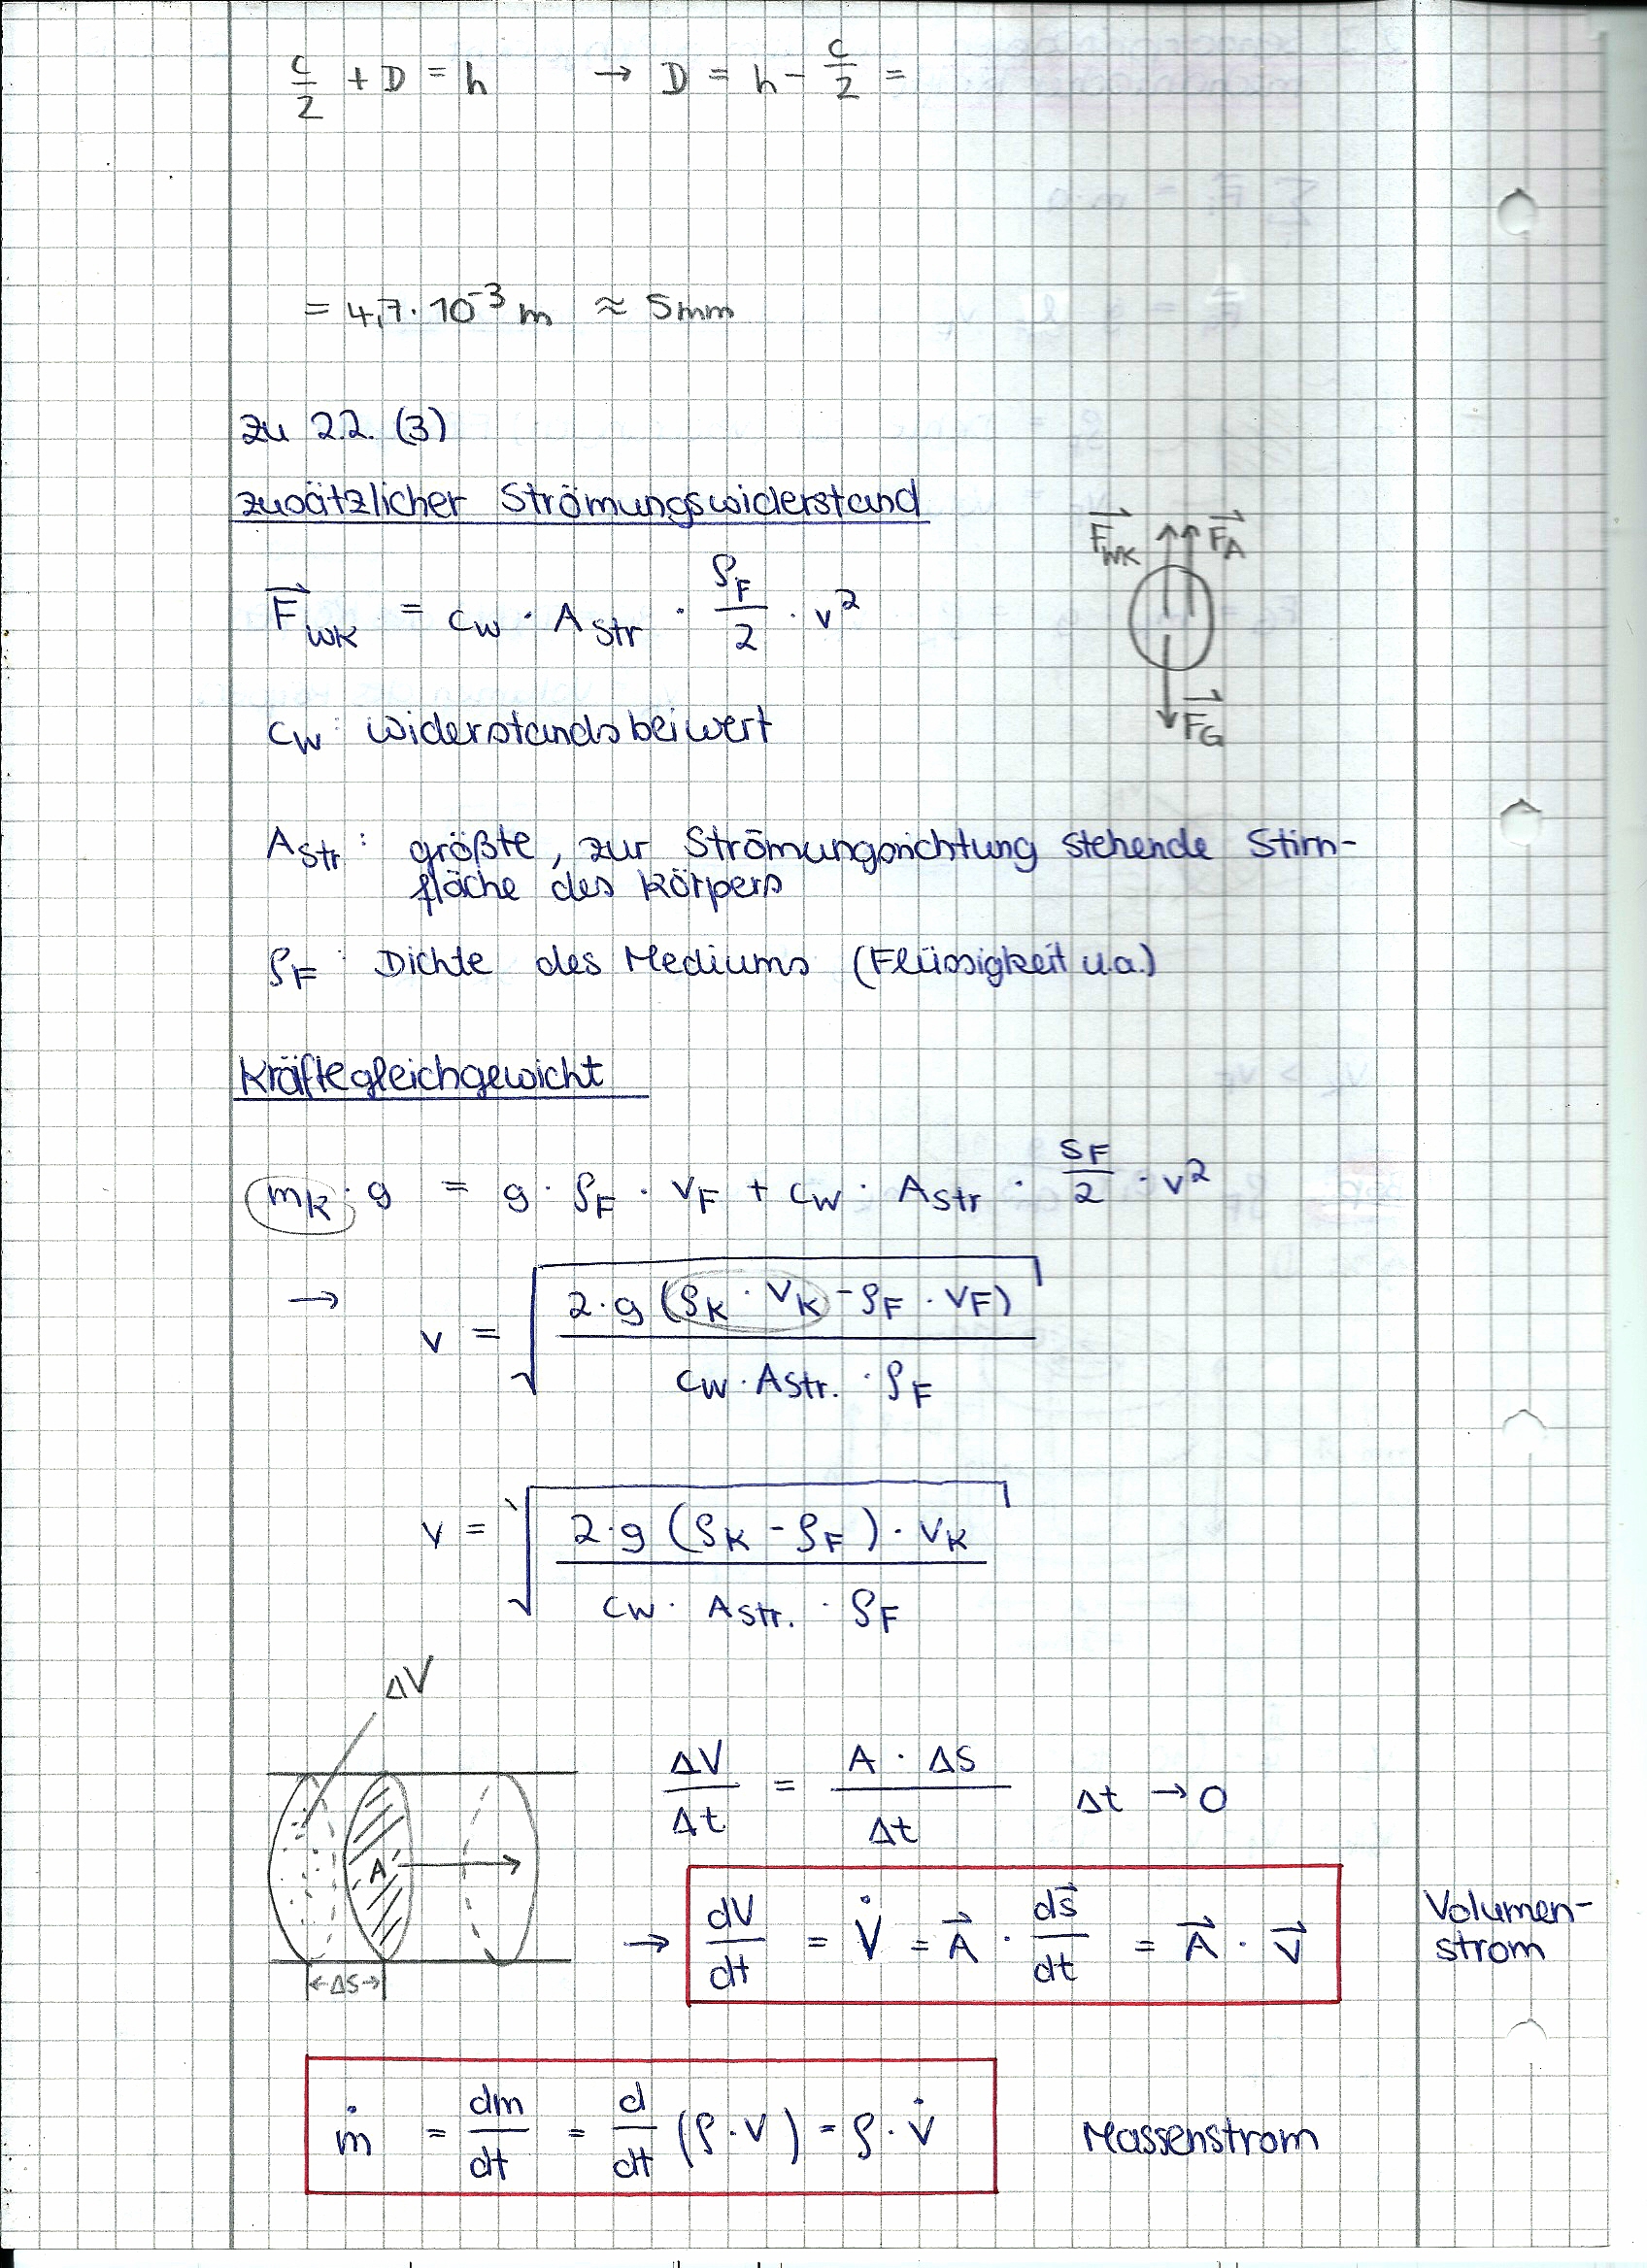 c/2 + D = h → D = h - c/2 =
= 4,7 · 10⁻³ m ≈ 5mm
zu 2.2. (3)
zusätzlicher Strömungswiderstand
F⃗_WK = c_W · A_Str · ρ_F/2 · v²
F⃗_WK F⃗_A
F⃗_G
c_W : Widerstandsbeiwert
A_Str : größte, zur Strömungsrichtung stehende Stirn-
fläche des Körpers
ρ_F : Dichte des Mediums (Flüssigkeit u.a.)
Kräftegleichgewicht
m_K · g = g · ρ_F · V_F + c_W · A_Str · ρ_F/2 · v²
→ v = √(2·g (ρ_K · V_K - ρ_F · V_F) / c_W · A_Str. · ρ_F)
v = √(2·g (ρ_K - ρ_F) · V_K / c_W · A_Str. · ρ_F)
ΔV
A
←Δs→
ΔV/Δt = A · Δs/Δt Δt → 0
→ dV/dt = V̇ = A⃗ · ds⃗/dt = A⃗ · v⃗
Volumen-
strom
ṁ = dm/dt = d/dt (ρ · V) = ρ · V̇ Massenstrom